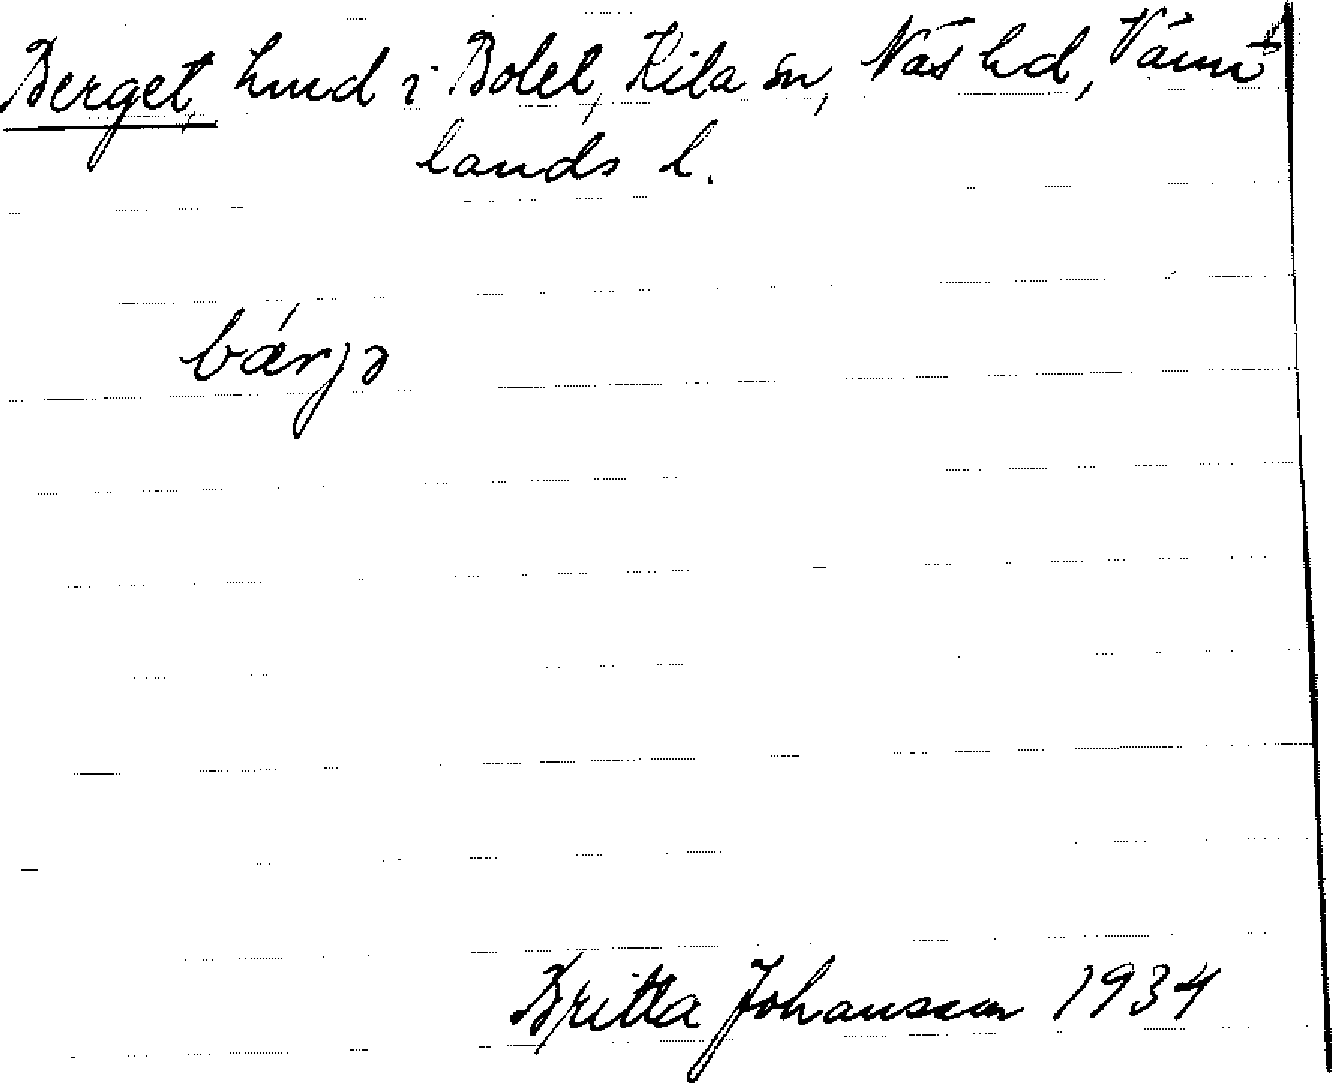 Berget, hmd i Bolet, Kila sn, Näs hd, Värm-
lands l.
bǽrjə
Britta Johansson 1934